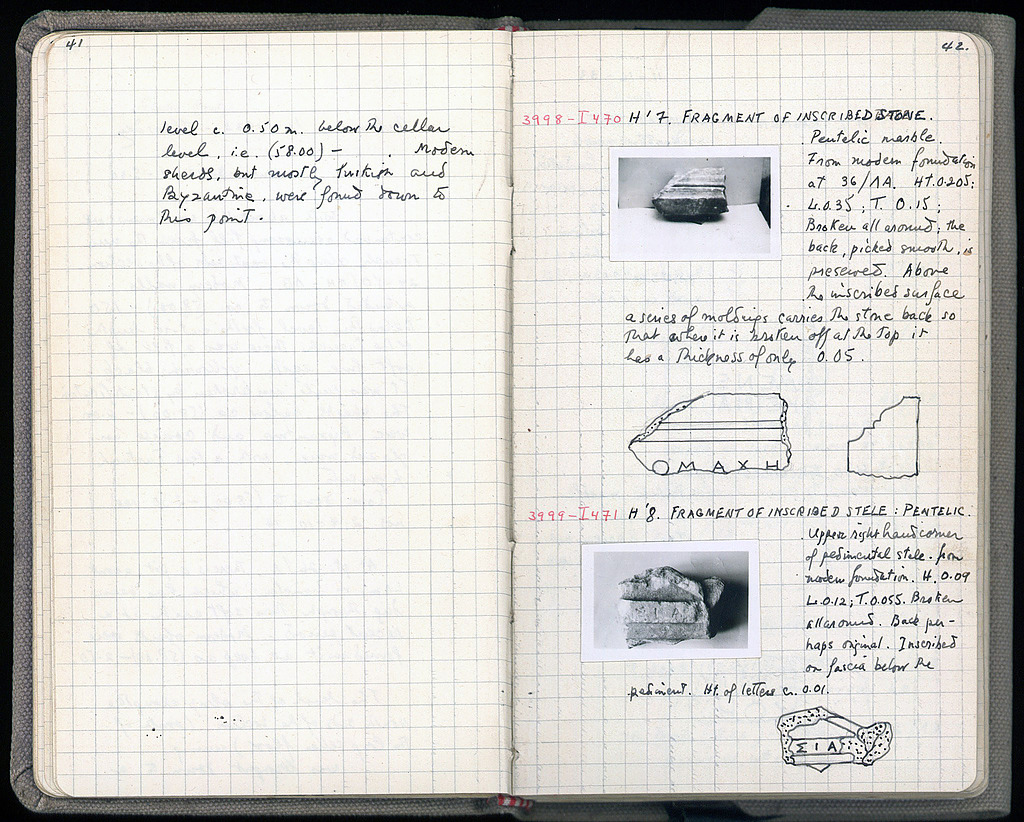 41
level c. 0.50 m. below the cellar
level, i.e. (58.00) – . Modern
sherds, but mostly Turkish and
Byzantine, were found down to
this point.
42.
3998-I 470 H'7. FRAGMENT OF INSCRIBED STONE.
Pentelic marble.
From modern foundation
at 36/ΛA. HT. 0.205;
L. 0.35; T. 0.15;
Broken all around; the
back, picked smooth, is
preserved. Above
the inscribed surface
a series of moldings carries the stone back so
that where it is broken off at the top it
has a thickness of only 0.05.
ΟΜΑΧΗ
3999-I 471 H'8. FRAGMENT OF INSCRIBED STELE: PENTELIC.
Upper right hand corner
of pedimental stele. from
modern foundation. H. 0.09
L. 0.12; T. 0.055. Broken
all around. Back per-
haps original. Inscribed
on fascia below the
pediment. Ht. of letters c. 0.01.
ΣΙΑ
ΣΙΑ